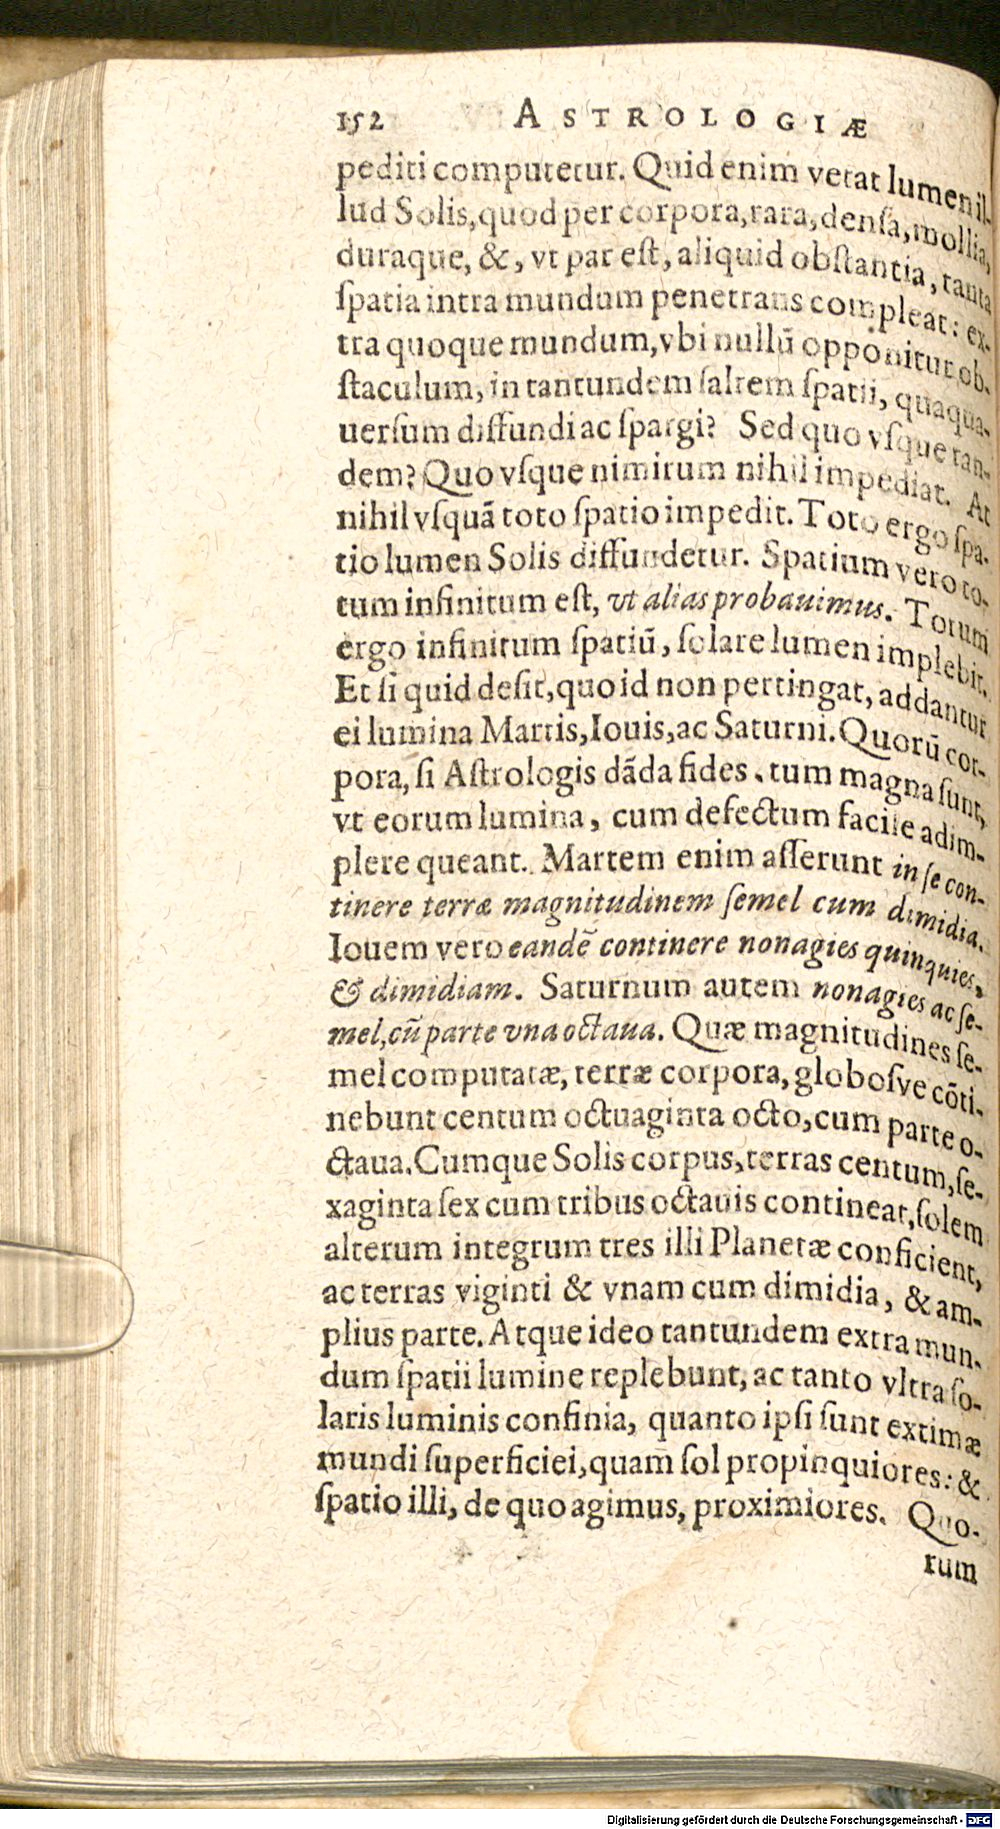 152 ASTROLOGIÆ
pediti computetur. Quid enim vetat lumen il-
lud Solis, quod per corpora, rara, densa, mollia,
duraque, &, vt par est, aliquid obstantia, tanta
spatia intra mundum penetrans compleat: ex-
tra quoque mundum, vbi nullũ opponitur ob-
staculum, in tantundem saltem spatii, quaqua-
uersum diffundi ac spargi? Sed quo vsque tan-
dem? Quo vsque nimirum nihil impediat. At
nihil vsquã toto spatio impedit. Toto ergo spa-
tio lumen Solis diffundetur. Spatium vero to-
tum infinitum est, vt alias probauimus. Totum
ergo infinitum spatiũ, solare lumen implebit.
Et si quid desit, quo id non pertingat, addantur
ei lumina Martis, Iouis, ac Saturni. Quorũ cor-
pora, si Astrologis dãda fides, tum magna sunt,
vt eorum lumina, cum defectum facile adim-
plere queant. Martem enim asserunt in se con-
tinere terræ magnitudinem semel cum dimidia.
Iouem vero eandẽ continere nonagies quinquies,
& dimidiam. Saturnum autem nonagies ac se-
mel, cũ parte vna octaua. Quæ magnitudines se-
mel computatæ, terræ corpora, globosve cõti-
nebunt centum octuaginta octo, cum parte o-
ctaua. Cumque Solis corpus, terras centum, se-
xaginta sex cum tribus octauis contineat, solem
alterum integrum tres illi Planetæ conficient,
ac terras viginti & vnam cum dimidia, & am-
plius parte. Atque ideo tantundem extra mun-
dum spatii lumine replebunt, ac tanto vltra so-
laris luminis confinia, quanto ipsi sunt extimæ
mundi superficiei, quam sol propinquiores: &
spatio illi, de quo agimus, proximiores. Quo-
rum
Digitalisierung gefördert durch die Deutsche Forschungsgemeinschaft - DFG